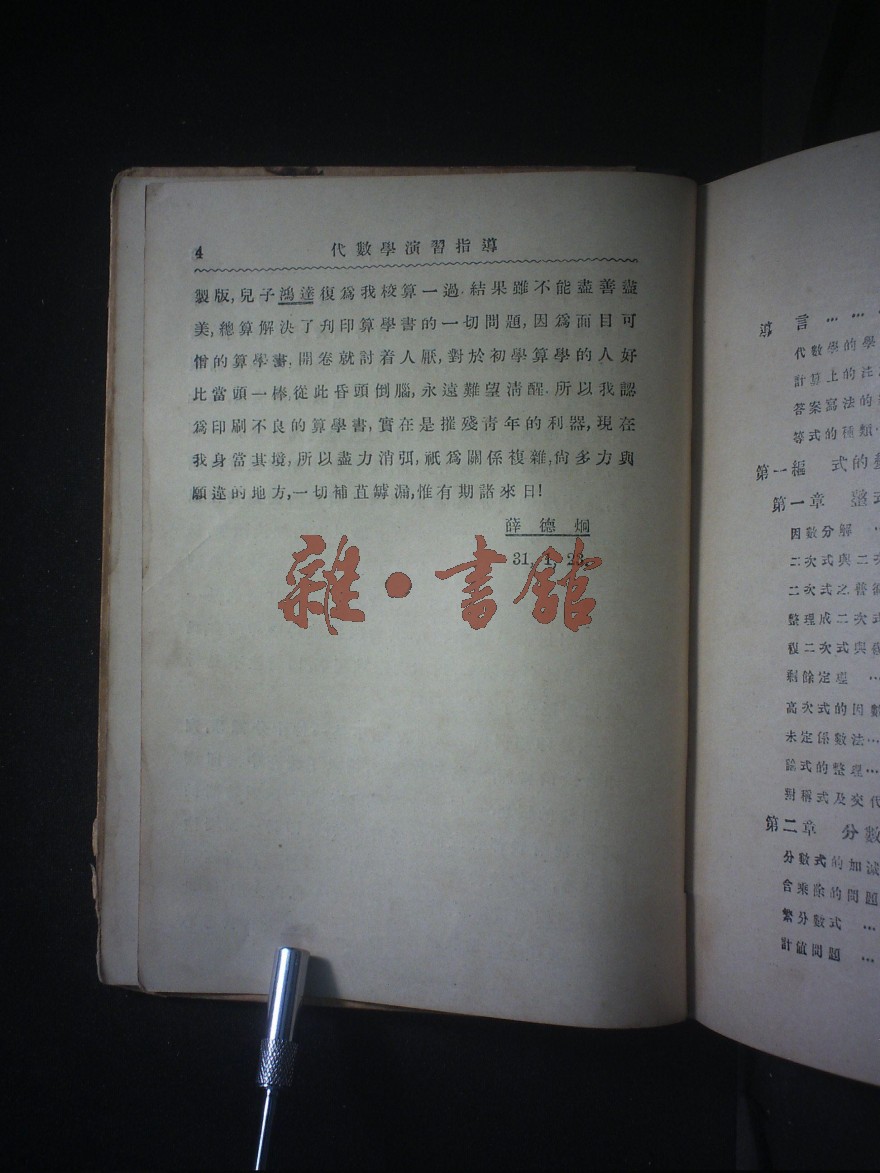 4
代數學演習指導
製版,兒子鴻逵復爲我校算一過.結果雖不能盡善盡
美,總算解決了刋印算學書的一切問題,因爲面目可
憎的算學書,開卷就討着人厭,對於初學算學的人好
比當頭一棒,從此昏頭倒腦,永遠難望淸醒.所以我認
爲印刷不良的算學書,實在是摧殘靑年的利器,現在
我身當其境,所以盡力消弭,祇爲關係複雜,尙多力與
願違的地方,一切補苴罅漏,惟有期諸來日!
薛德炯
31, 1, 23.
雜·書館
導言……
代數學的學
計算上的注
答案寫法的
等式的種類
第一編 式的
第一章 整式
因數分解…
二次式與二次
二次式之普
整理成二次式
複二次式與
剩餘定理…
高次式的因數
未定係數法…
除式的整理…
對稱式及交代
第二章 分數
分數式的加減
含乘除的問題
繁分數式…
計値問題…